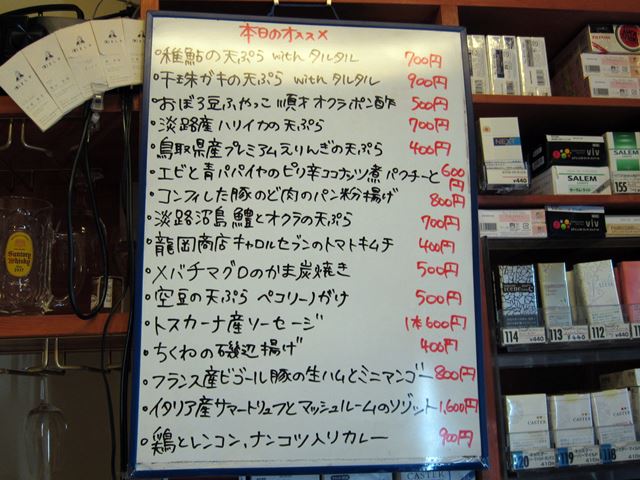 本日のオススメ
・稚鮎の天ぷら with タルタル 700円
・干珠ガキの天ぷら with タルタル 900円
・おぼろ豆ふやっこ 順才オクラポン酢 500円
・淡路産ハリイカの天ぷら 700円
・鳥取県産プレミアムえりんぎの天ぷら 400円
・エビと青パパイヤのピリ辛ココナッツ煮パクチーと 600円
・コンフィした豚のど肉のパン粉揚げ 800円
・淡路沼島鱧とオクラの天ぷら 700円
・龍岡商店キャロルセブンのトマトキムチ 400円
・メバチマグロのかま炭焼き 500円
・空豆の天ぷら ペコリーノがけ 500円
・トスカーナ産ソーセージ 1本600円
・ちくわの磯辺揚げ 400円
・フランス産ビゴール豚の生ハムとミニマンゴー 800円
・イタリア産サマートリュフとマッシュルームのリゾット 1,600円
・鶏とレンコン、ナンコツ入りカレー 900円
Suntory
Whisky
NEXT
¥440
viv
SALEM
viv
SALEM
155
114
¥440
113
¥440
112
CASTER
CASTER
120
119
410円
118
410円